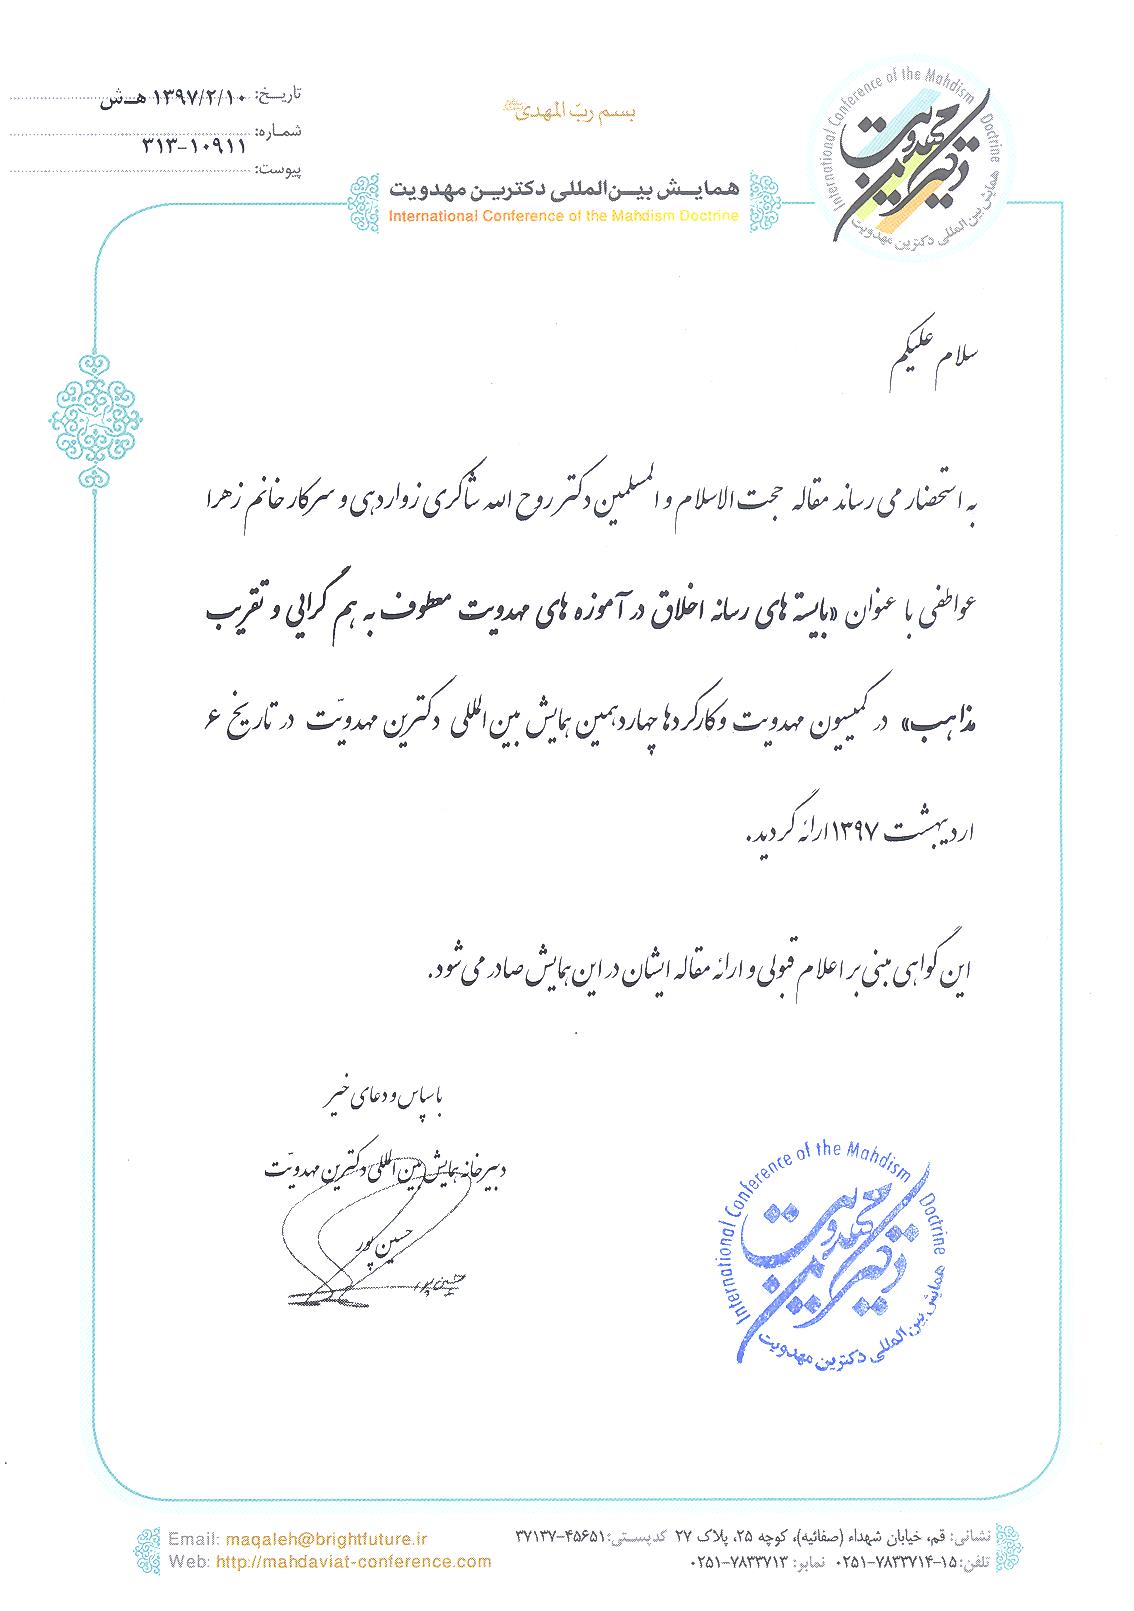 بسم ربّ المهدی
تاریخ: ۱۳۹۷/۲/۱۰ هـ‌ش
شماره: ۳۱۳-۱۰۹۱۱
پیوست:
همایش بین‌المللی دکترین مهدویت
International Conference of the Mahdism Doctrine
International Conference of the Mahdism Doctrine
همایش بین‌المللی دکترین مهدویت
دکترین مهدویت
سلام علیکم
به استحضار می رساند مقاله حجت الاسلام و المسلمین دکتر روح الله شاکری زواردهی و سرکار خانم زهرا
عواطفی با عنوان «بایسته های رسانه اخلاق در آموزه های مهدویت معطوف به هم گرایی و تقریب
مذاهب» در کمیسیون مهدویت و کارکردها چهاردهمین همایش بین المللی دکترین مهدویّت در تاریخ ۶
اردیبهشت ۱۳۹۷ ارائه گردید.
این گواهی مبنی بر اعلام قبولی و ارائه مقاله ایشان در این همایش صادر می شود.
با سپاس و دعای خیر
دبیرخانه همایش بین المللی دکترین مهدویّت
حسین پور
حسین پور
International Conference of the Mahdism Doctrine
همایش بین‌المللی دکترین مهدویت
دکترین مهدویت
نشانی: قم، خیابان شهداء (صفائیه)، کوچه ۲۵، پلاک ۲۷ کدپستی: ۴۵۶۵۱-۳۷۱۳۷
تلفن: ۱۵-۷۸۳۳۷۱۴-۰۲۵۱ نمابر: ۷۸۳۳۷۱۳-۰۲۵۱
Email: maqaleh@brightfuture.ir
Web: http://mahdaviat-conference.com